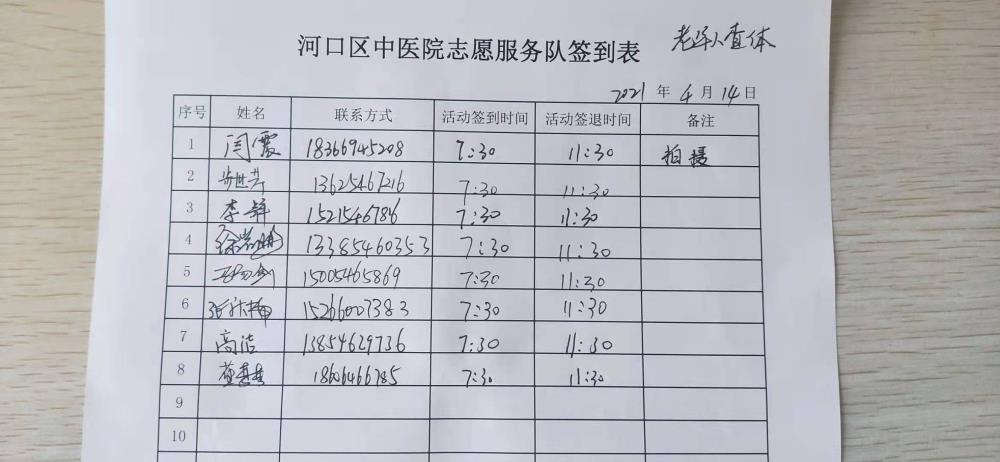 河口区中医院志愿服务队签到表 老年人查体
2021 年 4 月 14 日
序号 姓名 联系方式 活动签到时间 活动签退时间 备注
1 闫霞 18366945208 7:30 11:30 拍摄
2 13625467216 7:30 11:30
3 李 7:30 11:30
4 13385460353 7:30 11:30
5 15005465869 7:30 11:30
6 张 15266007383 7:30 11:30
7 高洁 13854629736 7:30 11:30
8 7:30 11:30
9
10